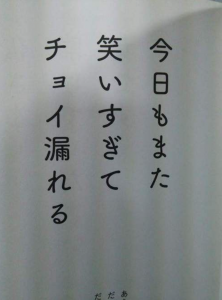 今日もまた
笑いすぎて
チョイ漏れる
あ
だ
だ